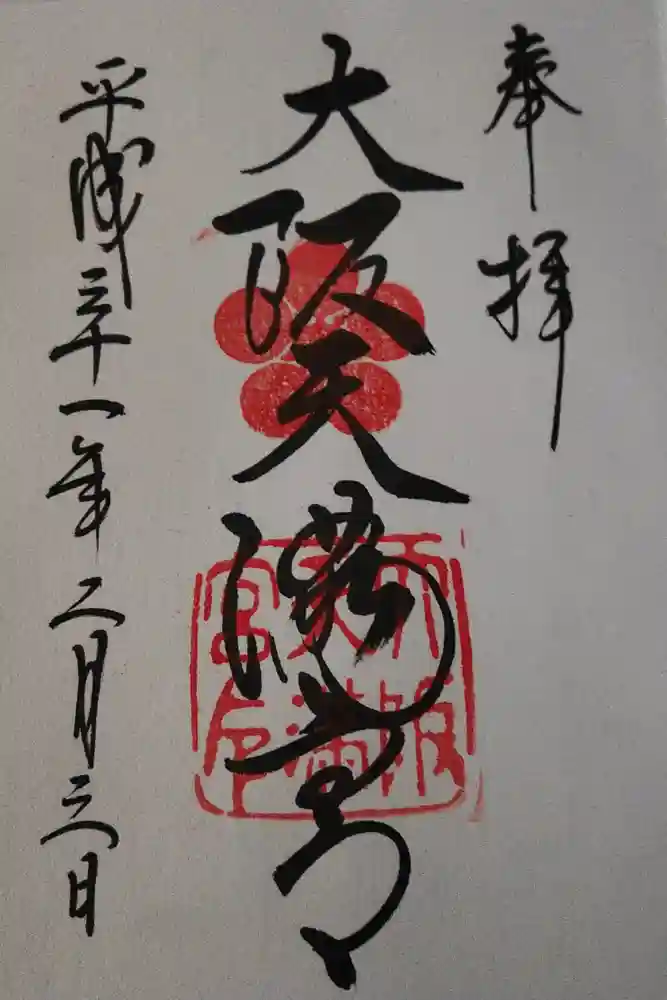 奉拝
大阪天満宮
平成三十一年二月三日
大阪
天満
宮印